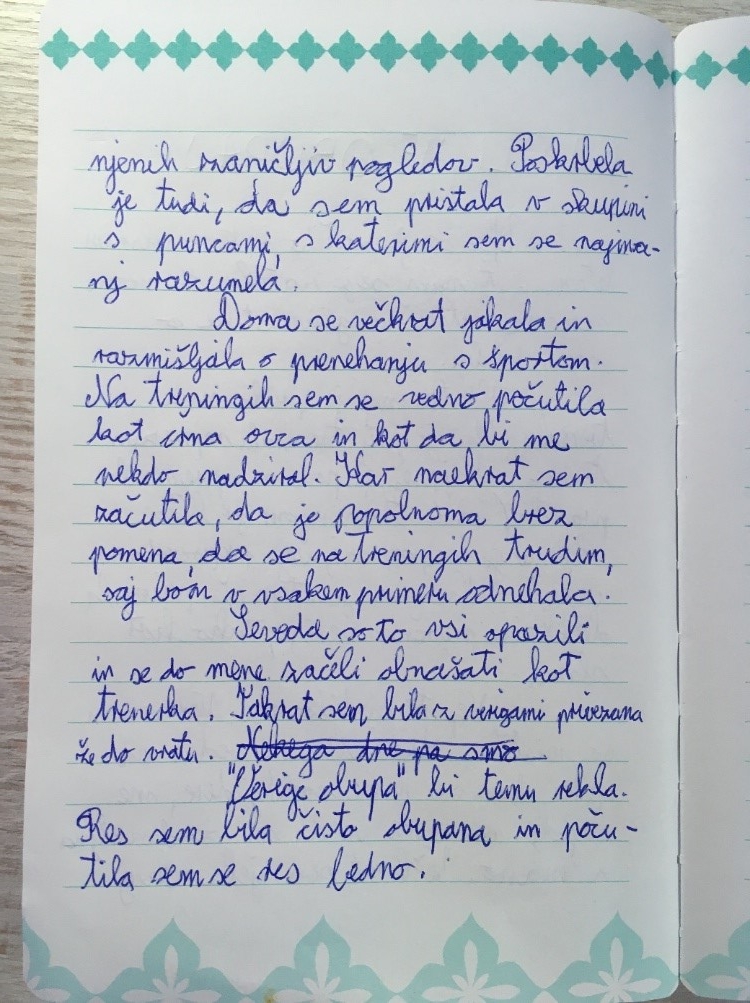 njenih zaničljiv pogledov. Poskrbela
je tudi, da sem pristala v skupini
s puncami, s katerimi sem se najma-
nj razumela.
Doma se večkrat jokala in
razmišljala o prenehanju s športom.
Na treningih sem se vedno počutila
kot črna ovca in kot da bi me
nekdo nadziral. Kar naekrat sem
začutila, da je popolnoma brez
pomena, da se na treningih trudim,
saj bom v vsakem primeru odnehala.
Seveda so to vsi opazili
in se do mene začeli obnašati kot
trenerka. Takrat sem bila z verigami privezana
že do vratu. Nekega dne pa smo
"Verige obupa" bi temu rekla.
Res sem bila čisto obupana in poču-
tila sem se res bedno.